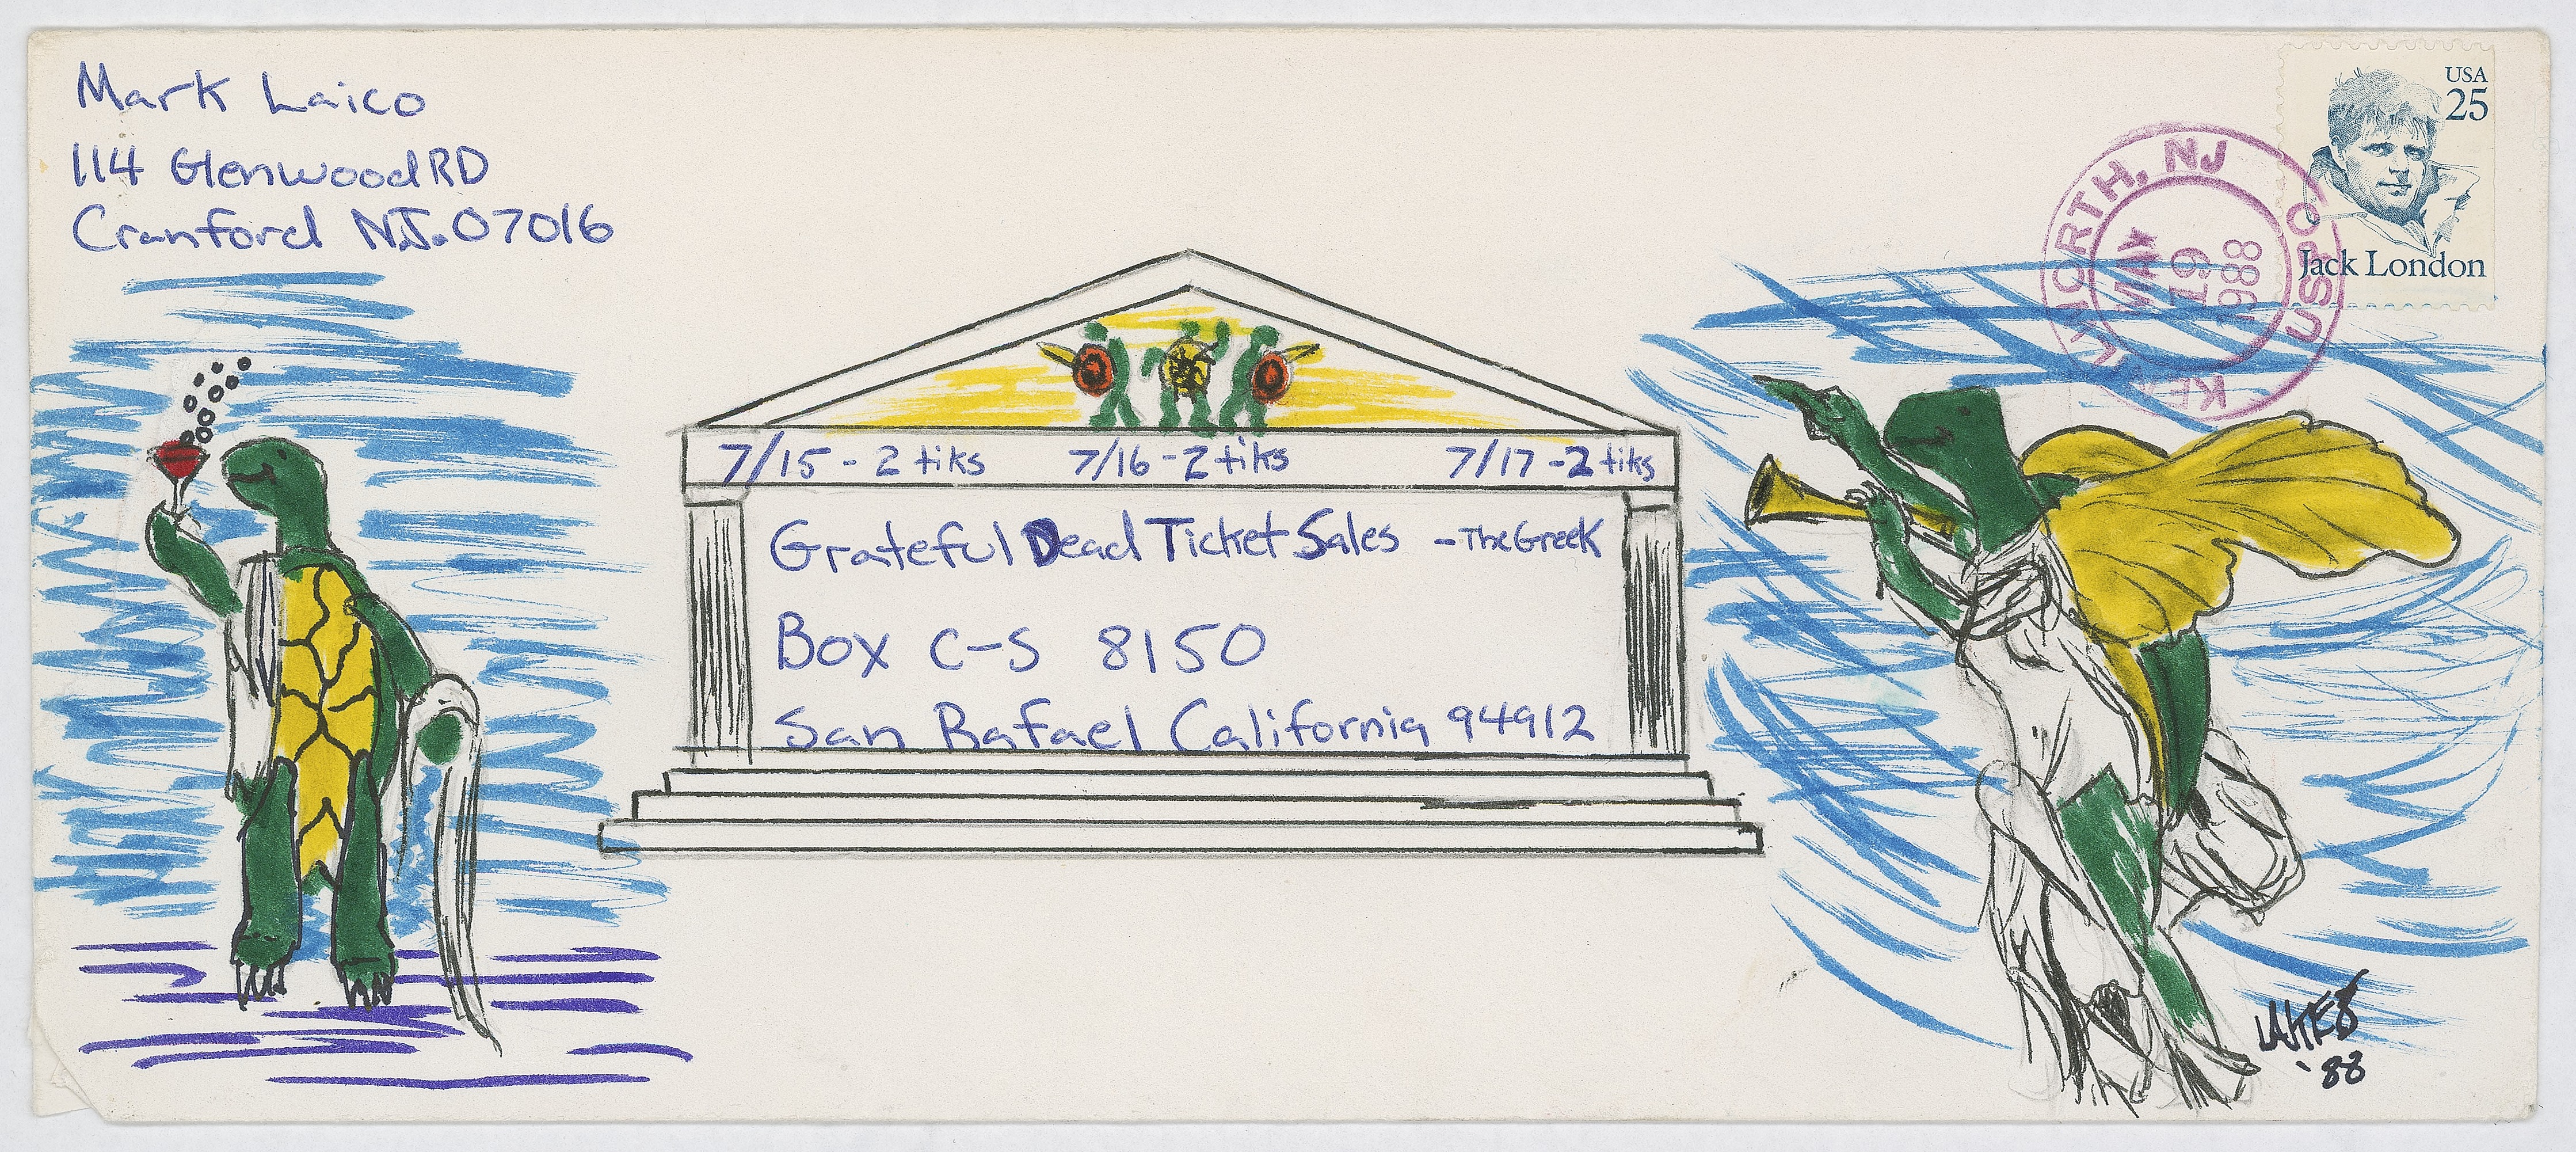 Mark Laico
114 Glenwood RD
Cranford N.J. 07016
USA
25
Jack London
KENILWORTH, NJ
MAY
19
1988
USPO
7/15 - 2 tiks 7/16 - 2 tiks 7/17 - 2 tiks
Grateful Dead Ticket Sales - The Greek
Box C-S 8150
San Rafael California 94912
'88